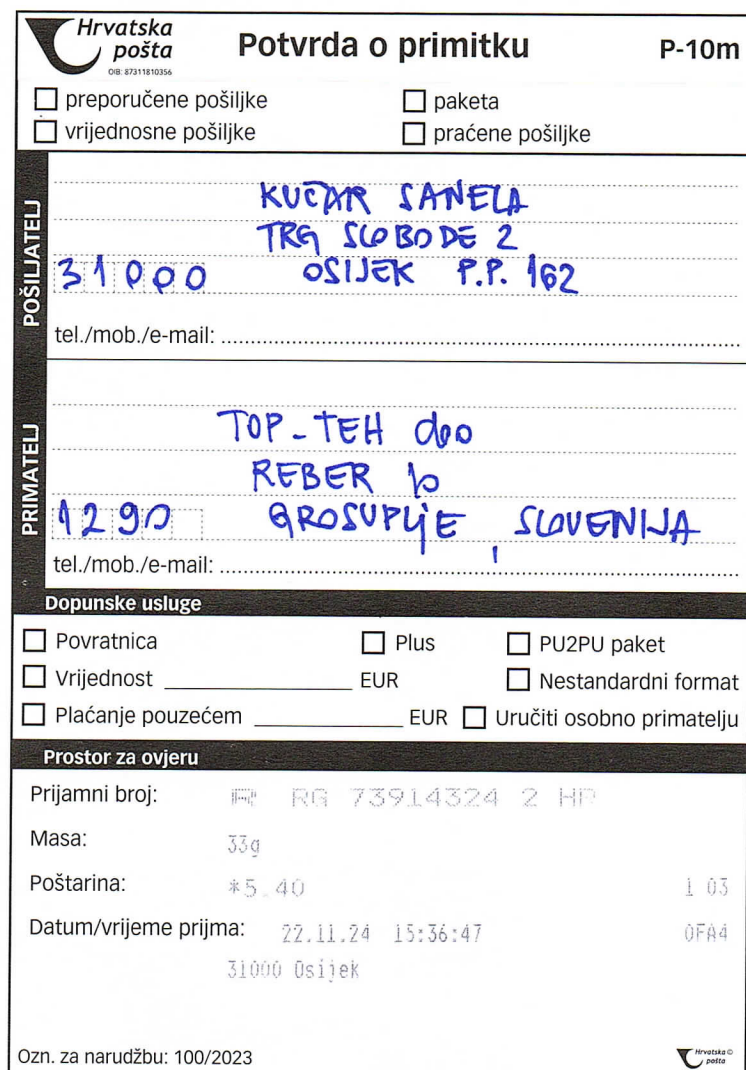 Hrvatska
pošta
OIB: 87311810356
Potvrda o primitku
P-10m
preporučene pošiljke
paketa
vrijednosne pošiljke
praćene pošiljke
POŠILJATELJ
KUČAR SANELA
TRG SLOBODE 2
31000 OSIJEK P.P. 162
tel./mob./e-mail:
PRIMATELJ
TOP-TEH doo
REBER
1290 GROSUPLJE, SLOVENIJA
tel./mob./e-mail:
Dopunske usluge
Povratnica
Plus
PU2PU paket
Vrijednost EUR
Nestandardni format
Plaćanje pouzećem EUR
Uručiti osobno primatelju
Prostor za ovjeru
Prijamni broj: R RG 73914324 2 HR
Masa: 33g
Poštarina: *5.40 1 03
Datum/vrijeme prijma: 22.11.24 15:36:47 0FA4
31000 Osijek
Ozn. za narudžbu: 100/2023
Hrvatska
pošta